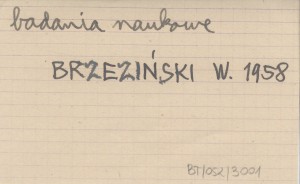 badania naukowe
BRZEZIŃSKI W. 1958
BT/052/3001